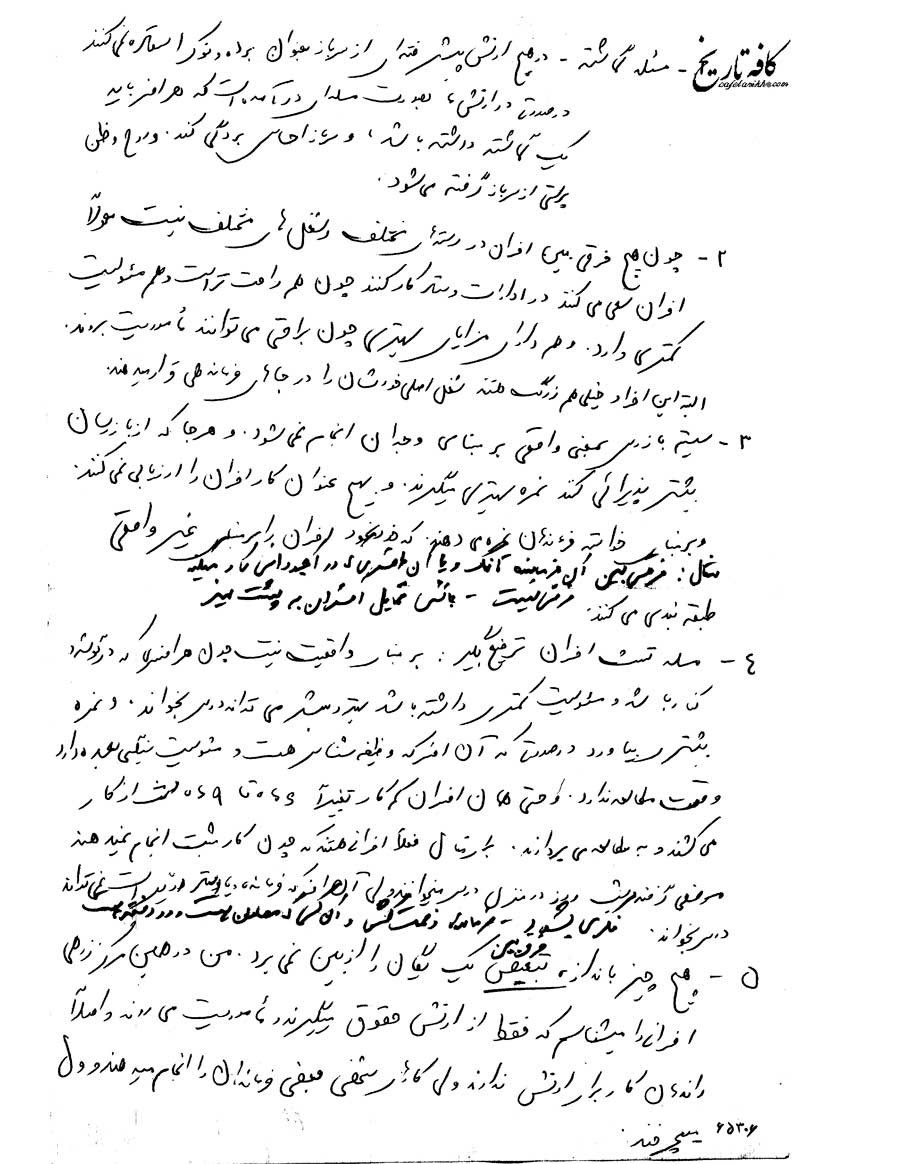 کافه تاریخ
cafetarikh.com
- مسئله گماشته - در هیچ ارتش پیشرفته‌ای از سرباز بعنوان برده و نوکر استفاده نمی‌کنند
در صورتی در ارتش ما بصورت مسئله‌ای در آمده است که هر افسر باید
یک گماشته داشته باشد، و سرباز احساس بردگی کند. و روح وطن
پرستی از سرباز گرفته می‌شود.
۲ - چون هیچ فرقی بین افسران در رسته‌های مختلف و شغل‌های مختلف نیست معمولاً
افسران سعی می‌کنند در ادارات و ستاد کار کنند چون هم راحت‌تر است و هم مسئولیت
کمتری دارد. و هم دارای مزایای بهتری چون براحتی می‌توانند مأموریت بروند.
البته این افراد خیلی هم زرنگ هستند شغل اصلی خودشان را در جاهای فرماندهی قرار میدهند.
۳ - سیستم بازرسی بمعنی واقعی بر مبنای وجدان انجام نمی‌شود. و هر جا که از بازرسان
بیشتر پذیرائی کند نمره بهتری میگیرند. و بهیچ عنوان کار افسران را ارزیابی نمی‌کنند.
و بر مبنای خواسته فرماندهان نمره می‌دهند. که خود بخود افسران را بر مبنای غیر واقعی
مثال: فرقی بین آن فرمانده تانک و یا آن افسری که در آجودانی کار میکند
فرقی نیست - باعث تمایل افسران به پشت میز
طبقه بندی می‌کند.
٤ - مسئله تست افسران ترفیع بگیر: بر مبنای واقعیت نیست چون هر افسری که در گوشه و
کنار باشد و مسئولیت کمتری داشته باشد بهتر و بیشتر می‌تواند درس بخواند. و نمره
بیشتری بیاورد در صورتی که آن افسر که وظیفه شناس هست و مسئولیت سنگینی بعهده دارد
وقت مطالعه ندارد. و حتی همان افسران کم کار تقریباً ماه تا ماه دست از کار
می‌کشند و به مطالعه می‌پردازند. بطور مثال فعلاً افسرانی هستند که چون کار مثبت انجام نمیدهند
مرخصی گرفته روز در منزل درس میخوانند ولی آن افسری که فرمانده یا نمی‌تواند
درس بخواند. فکری بشود - فرمانده زحمت کش و آن کس که
۵ - هیچ چیز باندازه تبعیض یک یگان را از بین نمی‌برد. من در همین مرکز زرهی
افسرانی را میشناسم که فقط از ارتش حقوق میگیرند و مأموریت می‌روند و اصلاً
راندمان کار برای ارتش ندارند ولی کارهای شخصی بعضی فرماندهان را انجام میدهند و پول
۶۵۳۰۶